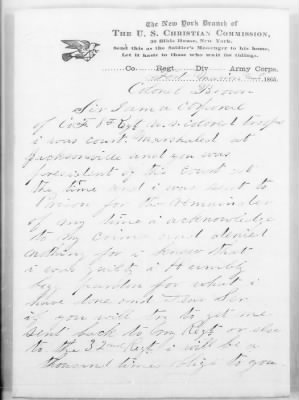 The New York Branch of
THE U. S. CHRISTIAN COMMISSION,
30 Bible House, New York.
Send this as the Soldier's Messenger to his home,
Let it hasten to those who wait for tidings.
Co. Regt. Div Army Corps.
1865.
Colonel Brown
Sir I am a Corporal
of Co 8th Regt U.S. Colored troops
i was court Marshaled at
Jacksonville and you was
president of the court at
the time and i was sent to
Prison for the remainder
of my time i acknowledge
to my crime and denied
nothing for i know that
i was guilty i Humbly
beg pardon for what i
have done and Dear Sir
if you will try to get me
sent back to my Regt or else
to the 32nd Regt i will be a
thousand times oblige to you